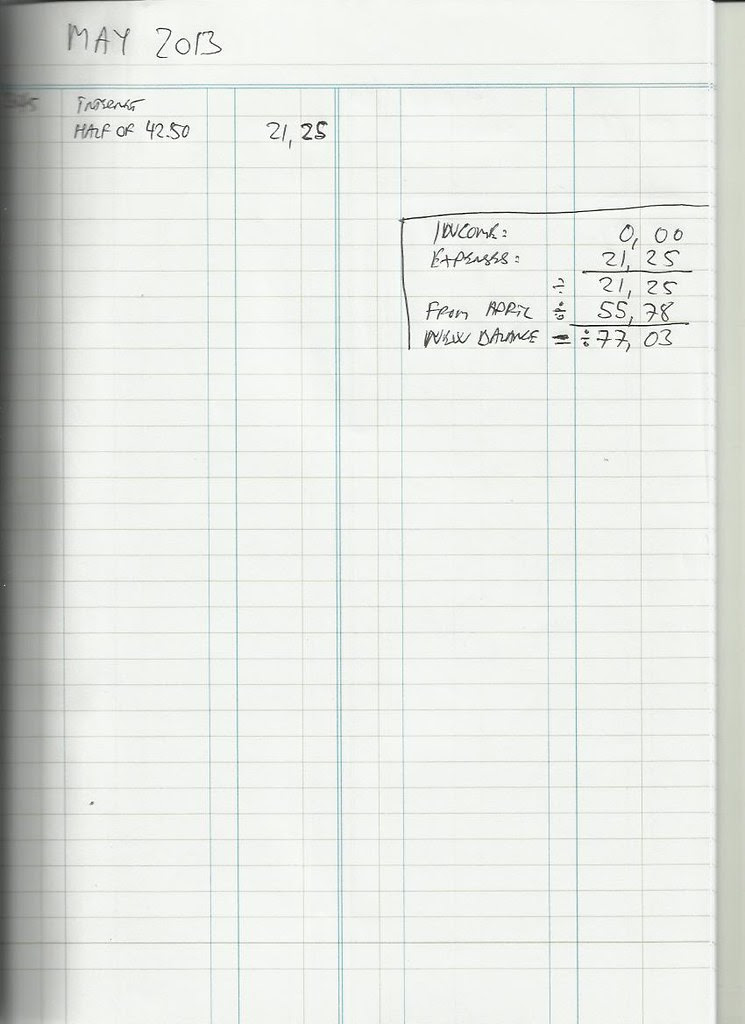 MAY 2013
HALF OF 42.50 21,25
INCOME: 0,00
EXPENSES: 21,25
÷ 21,25
FROM APRIL ÷ 55,78
NEW BALANCE = ÷77,03